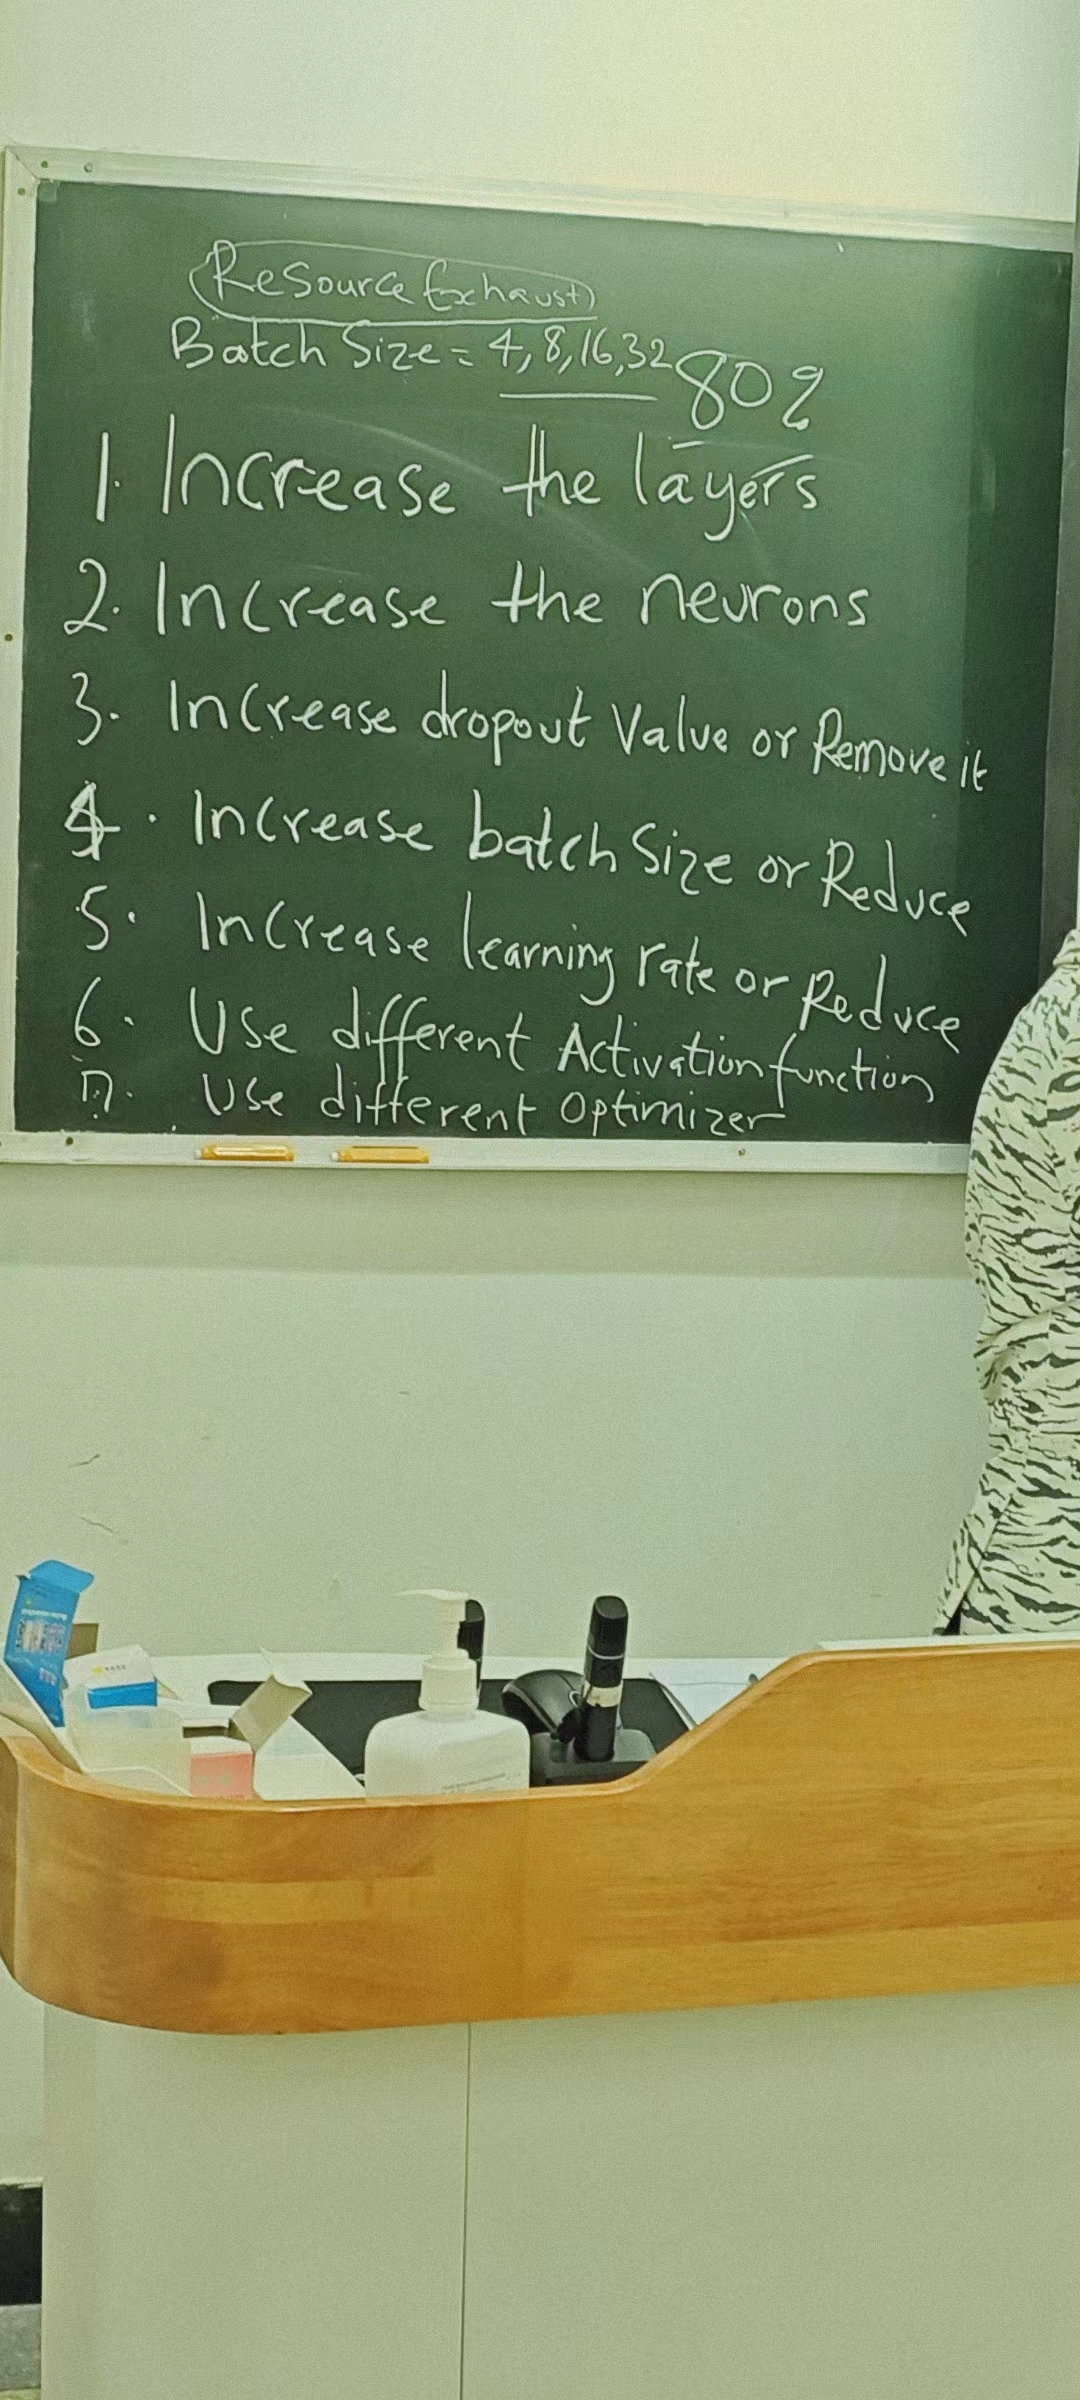 Resource Exhaust
Batch Size = 4, 8, 16, 32
80%
1. Increase the layers
2. Increase the neurons
3. Increase dropout Value or Remove it
4. Increase batch Size or Reduce
5. Increase learning rate or Reduce
6. Use different Activation function
7. Use different Optimizer